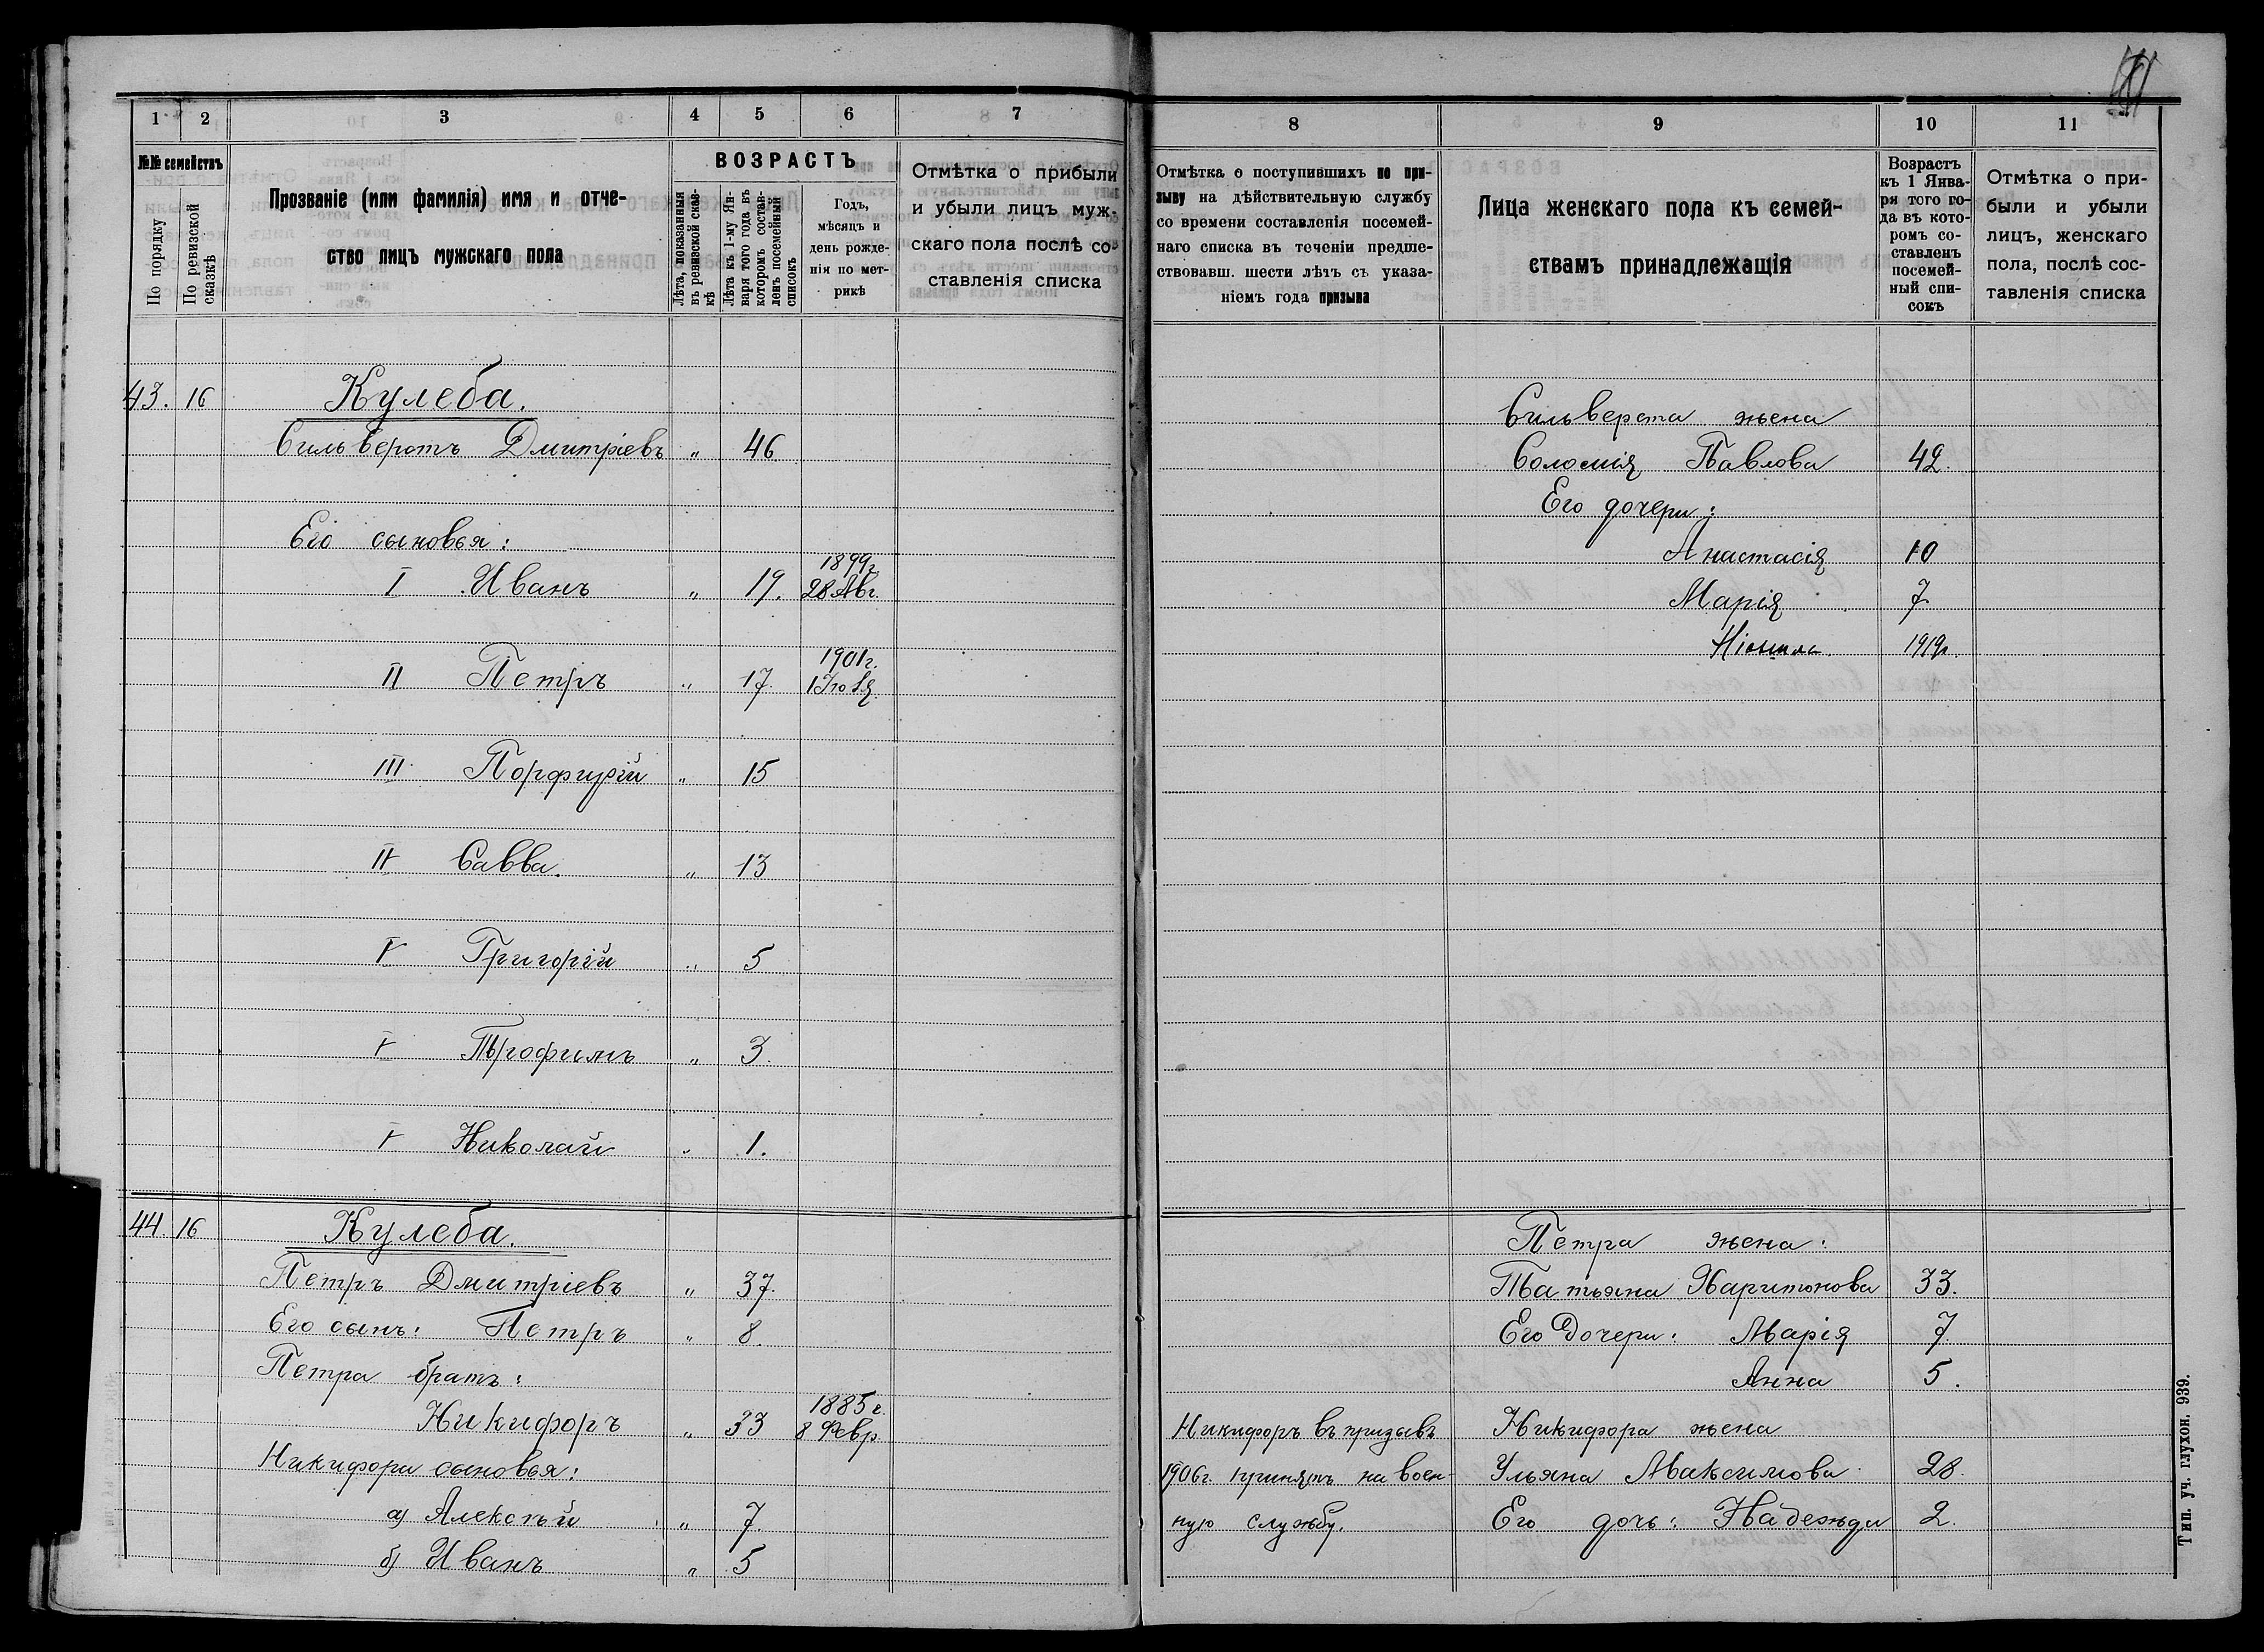 1 2 3 4 5 6 7
№№ семействъ
По порядку
По ревизской сказкѣ
Прозваніе (или фамилія) имя и отче-
ство лицъ мужскаго пола
ВОЗРАСТЪ
Лѣта, показанныя
въ ревизской сказ-
кѣ
Лѣта къ 1-му Ян-
варя того года въ
которомъ состав-
ленъ посемейный
списокъ
Годъ,
мѣсяцъ и
день рожде-
нія по мет-
рикѣ
Отмѣтка о прибыли
и убыли лицъ муж-
скаго пола послѣ со-
ставленія списка
43. 16 Кулеба.
Сильверстъ Дмитріевъ „ 46
Его сыновья:
1899г.
I Иванъ „ 19. 28 Авг.
1901г.
II Петръ „ 17. 1 Іюля
III Порфирій „ 15
IV Савва. „ 13
V Григорій „ 5
V Трофимъ „ 3.
V Николай „ 1.
44. 16 Кулеба.
Петръ Дмитріевъ „ 37.
Его сынъ: Петръ „ 8.
Петра братъ:
1885г.
Никифоръ „ 33 8 Февр.
Никифора сыновья:
а) Алексѣй „ 7.
б) Иванъ „ 5
8 9 10 11
Отмѣтка о поступившихъ по при-
зыву на дѣйствительную службу
со времени составленія посемей-
наго списка въ теченіи предше-
ствовавш. шести лѣтъ съ указа-
ніемъ года призыва
Лица женскаго пола къ семей-
ствамъ принадлежащія
Возрастъ
къ 1 Янва-
ря того го-
да въ кото-
ромъ со-
ставленъ
посемей-
ный спи-
сокъ
Отмѣтка о при-
были и убыли
лицъ, женскаго
пола, послѣ сос-
тавленія списка
Сильверста жена
Соломія Павлова 42.
Его дочери:
Анастасія 10
Марія 7
1919г.
Петра жена:
Татьяна Харитонова 33.
Его дочери: Марія 7
Анна 5.
Никифоръ въ призывъ Никифора жена
1906г. принятъ на воен- Ульяна Максимова 28.
ную службу. Его дочь: Надежда 2.
Тип. уч. глухон. 939.